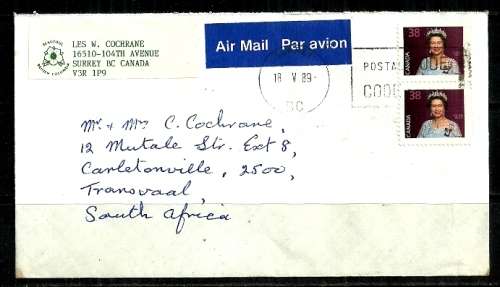 LES W. COCHRANE
16510-104TH AVENUE
SURREY BC CANADA
V3R 1P9
Air Mail Par avion
18 V 89
BC
POSTAL CODE
CODE
38
CANADA
38
CANADA
Mr & Mrs C. Cochrane,
12 Mutale Str. Ext 8,
Carletonville, 2500,
Transvaal,
South Africa